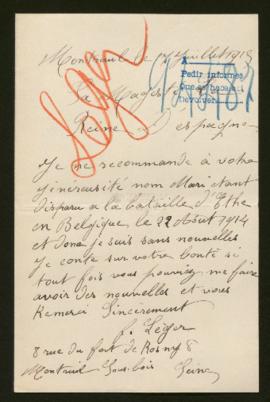 Montreuil le Juillet 1915
Sa Majesté la
Reine d'espagne
Leger
Pedir informes
Je me recommande à votre
générosité nom Mari etant
disparu a la bataille d'Ethe
en Belgique, le 22 Août 1914
et dont je suis sans nouvelles
Je conte sur votre bonté si
tout fois vous pouviez me faire
avoir des nouvelles et vous
Remerci Sincèrement
J. Léger
8 rue du fort de Rosny 8
Montreuil Sous-bois Seine